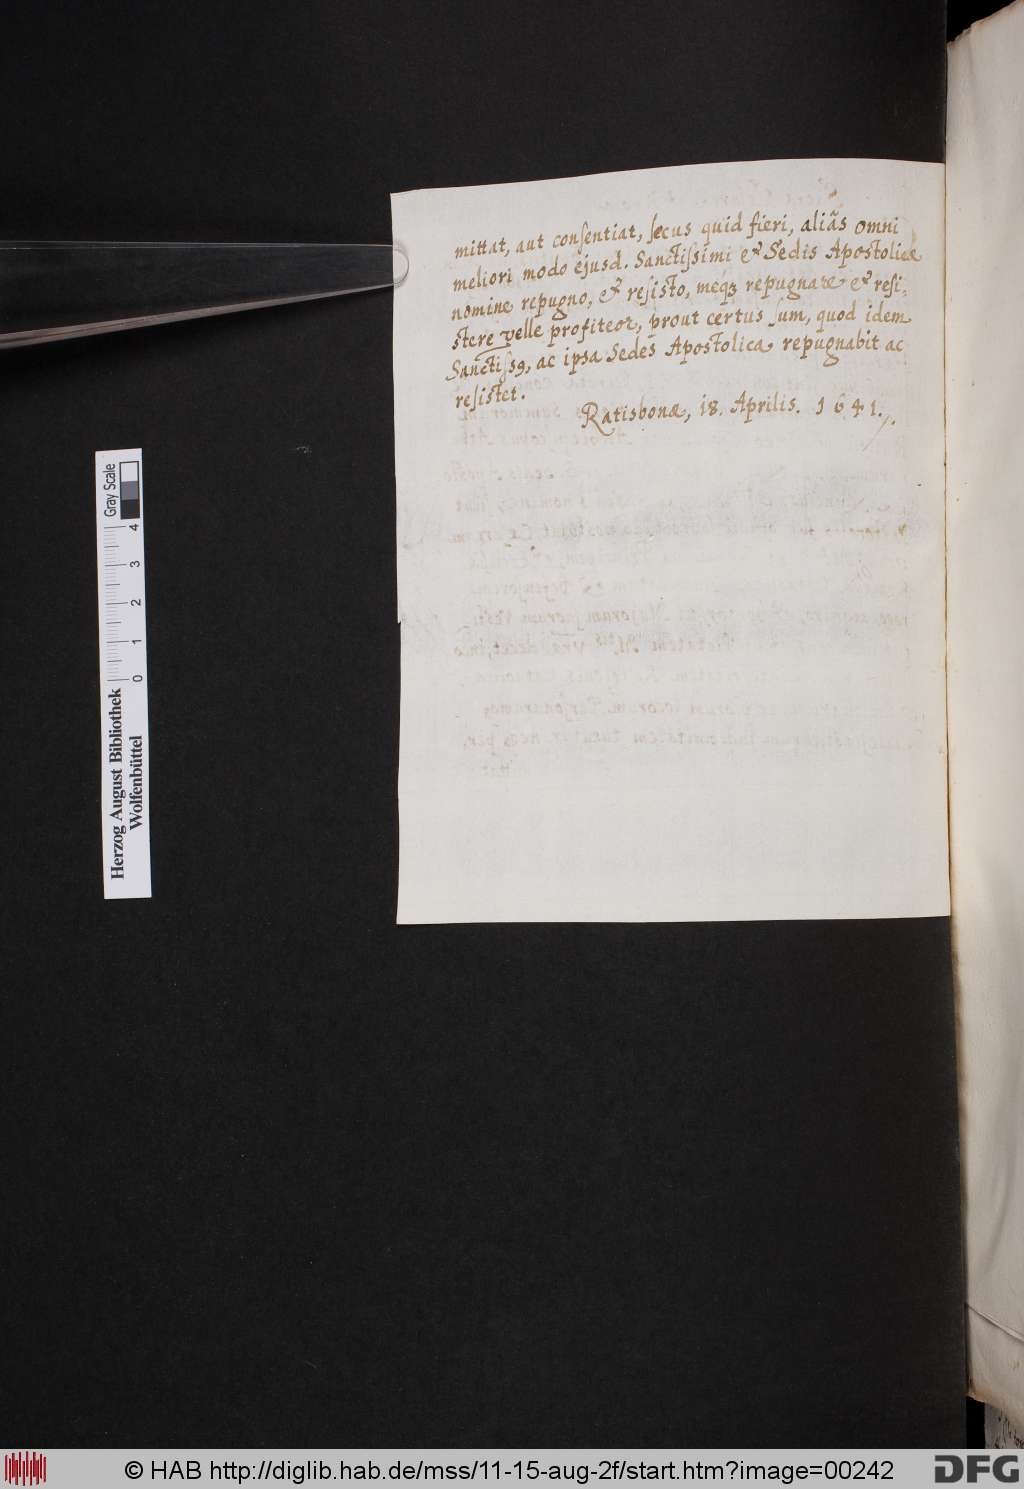 mittat, aut consentiat, secus quid fieri, aliàs omni
meliori modo ejusd. Sanctissimi et Sedis Apostolicæ
nomine repugno, et resisto, meq; repugnare et resi:
stere velle profiteor, prout certus sum, quod idem
Sanctiss9, ac ipsa Sedes Apostolica repugnabit ac
resistet.
Ratisbonæ, 18. Aprilis. 1641.
Gray Scale
0 1 2 3 4
Herzog August Bibliothek
Wolfenbüttel
© HAB http://diglib.hab.de/mss/11-15-aug-2f/start.htm?image=00242
DFG